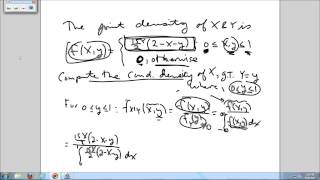 The joint density of X&Y is
f(x,y) = { 15x/2 (2-x-y) 0≤x,y≤1
0, otherwise
Compute the Cond. density of X, gt. Y=y
where, 0≤y≤1
For 0≤y≤1: f_{X|Y}(x,y) = f(x,y)/f_Y(y) = f(x,y)/∫_{-∞}^{∞} f(x,y) dx
= 15x/2 (2-x-y) / ∫ 15x/2 (2-x-y) dx